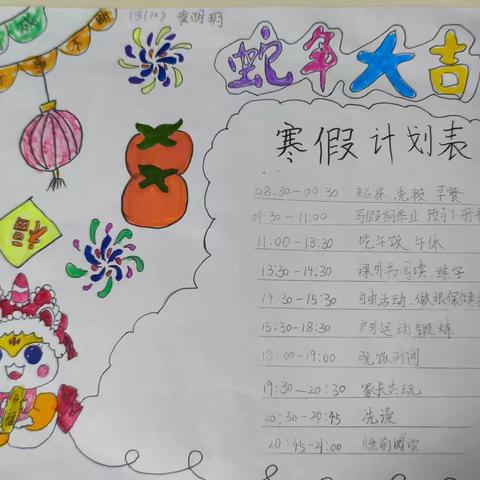 1四(10) 袁明明
蛇年大吉
寒假计划表
福
08:30-09:30 起床 洗漱 早餐
09:30-11:00 写假期作业 预习下册
11:00-13:30 吃午饭 午休
13:30-14:30 课外书阅读 练字
14:30-15:30 自由活动 做眼保健
15:30-18:30 户外运动 锻炼
18:00-19:00 晚饭时间
19:30-20:30 家长共玩
20:30-20:45 洗澡
20:45-21:00 睡前阅读